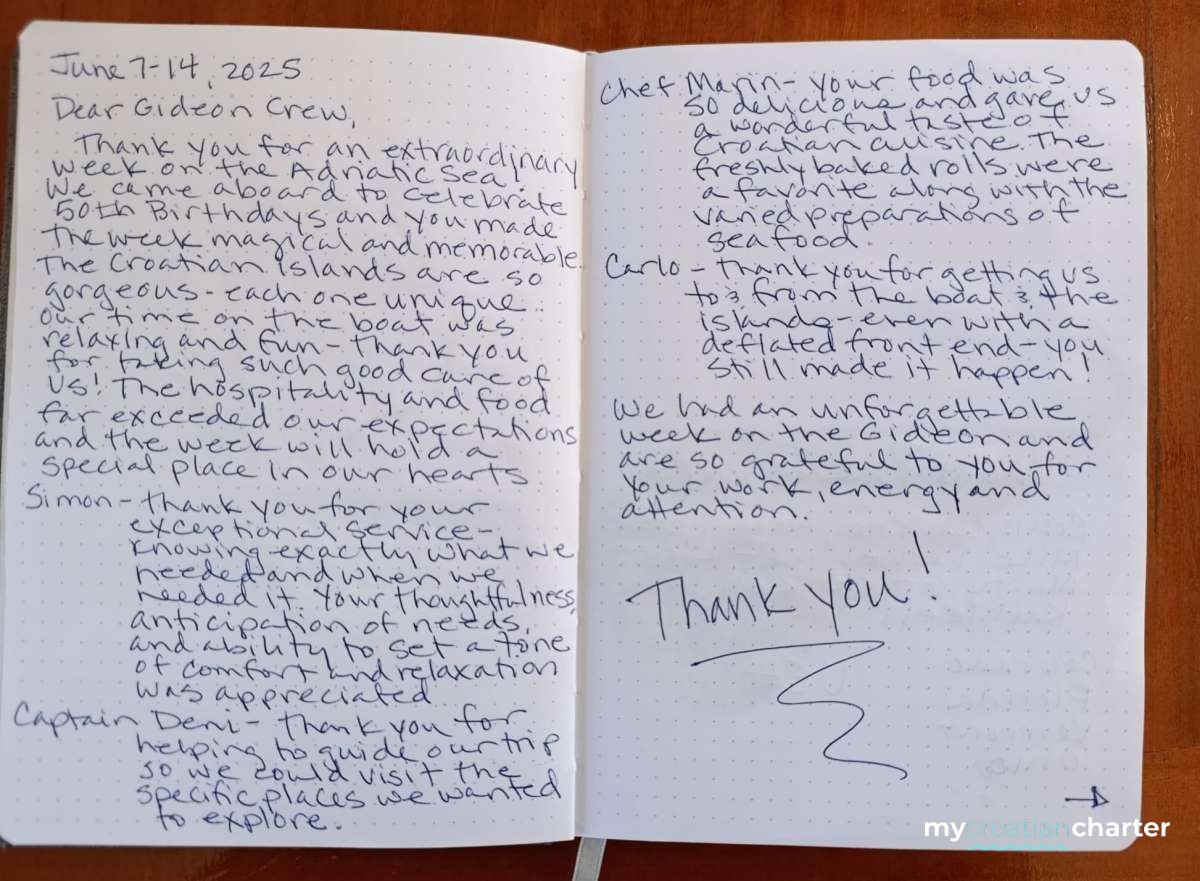 June 7-14, 2025
Dear Gideon Crew,
Thank you for an extraordinary
week on the Adriatic Sea!
We came aboard to celebrate
50th Birthdays and you made
the week magical and memorable.
The Croatian islands are so
gorgeous - each one unique.
Our time on the boat was
relaxing and fun - thank you
for taking such good care of
us! The hospitality and food
far exceeded our expectations
and the week will hold a
special place in our hearts.
Simon - thank you for your
exceptional service -
knowing exactly what we
needed and when we
needed it. Your thoughtfulness,
anticipation of needs,
and ability to set a tone
of comfort and relaxation
was appreciated.
Captain Deni - thank you for
helping to guide our trip
so we could visit the
specific places we wanted
to explore.
Chef Marin - your food was
so delicious and gave us
a wonderful taste of
Croatian cuisine. The
freshly baked rolls were
a favorite along with the
varied preparations of
seafood.
Carlo - thank you for getting us
to & from the boat & the
islands - even with a
deflated front end - you
still made it happen!
We had an unforgettable
week on the Gideon and
are so grateful to you for
your work, energy and
attention.
Thank you!
mycroatiancharter